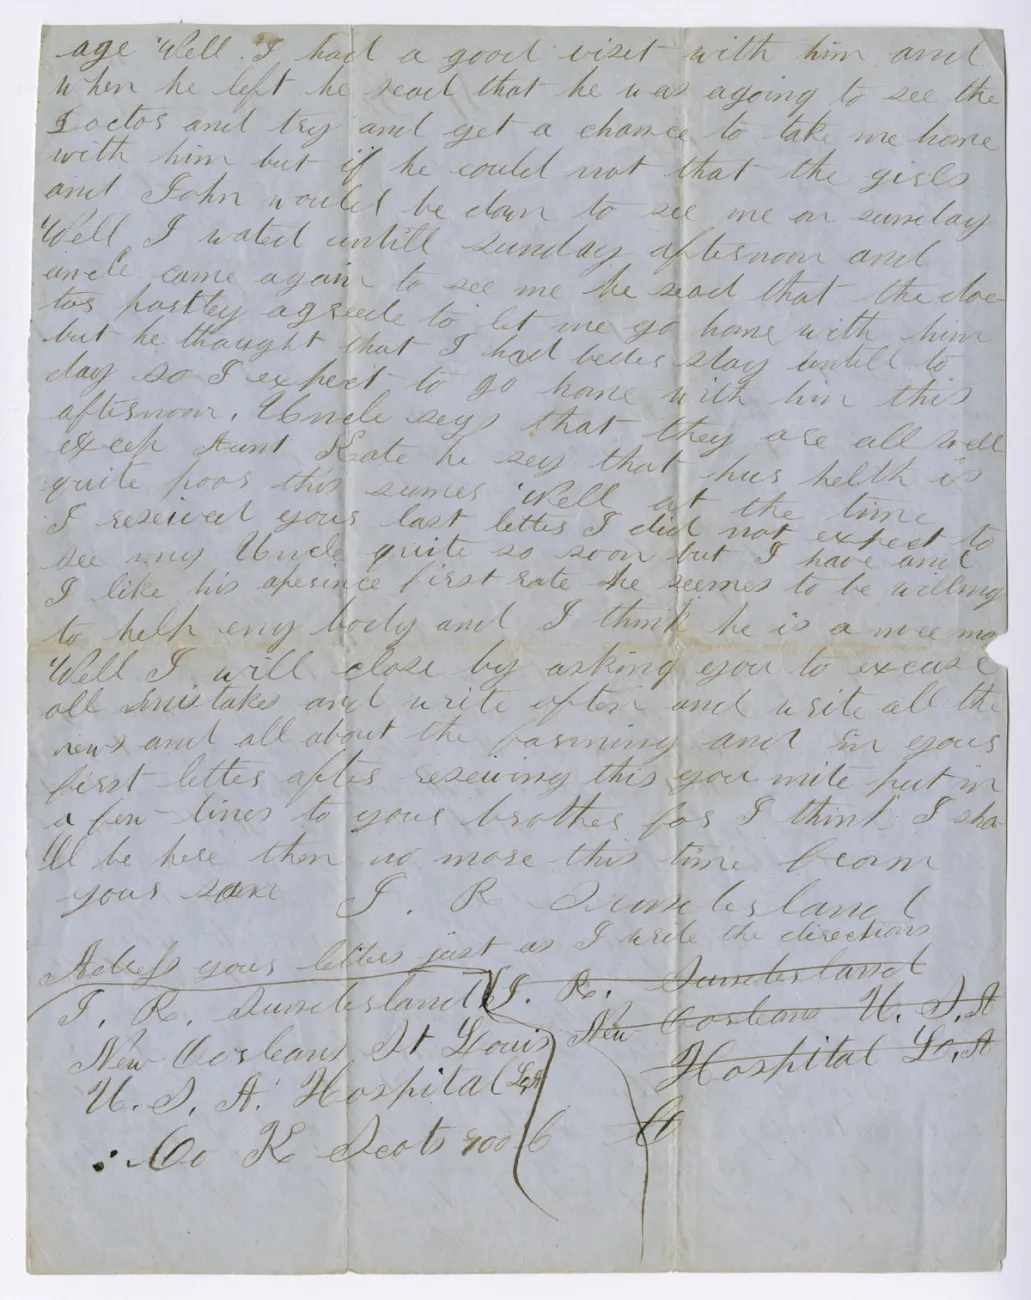 age Well I had a good viset with him and
when he left he sead that he was agoing to see the
Doctor and try and get a chance to take me home
with him but if he could not that the girls
and John would be down to see me on sunday
Well I wated untill sunday afternoon and
uncle came again to see me he sead that the doc
tor partley agreede to let me go home with him
but he thought that I had beter stay untill to
day so I expect to go home with him this
afternoon. Uncle seys that they are all well
excep Aunt Kate he sey that hur helth is
quite poor this sumer Well at the time
I reseived your last letter I did not expect to
see my Uncle quite so soon but I have and
I like his aperince first rate he seemes to be willing
to help eny body and I think he is a nice ma
Well I will close by asking you to excuse
all mistakes and write often and write all the
news and all about the farming and in your
first letter after reseiving this you mite put in
a few lines to your brother for I think I sha
ll be here then no more this time from
your son J. R. Sunderland
Adress your letters just as I write the directions
J. R. Sunderland J. R. Sunderland
New Oorleans St Louis New Oorleans U. S. A
U. S. A. Hospital La Hospital Lo, A
Co K Scots 900 Co